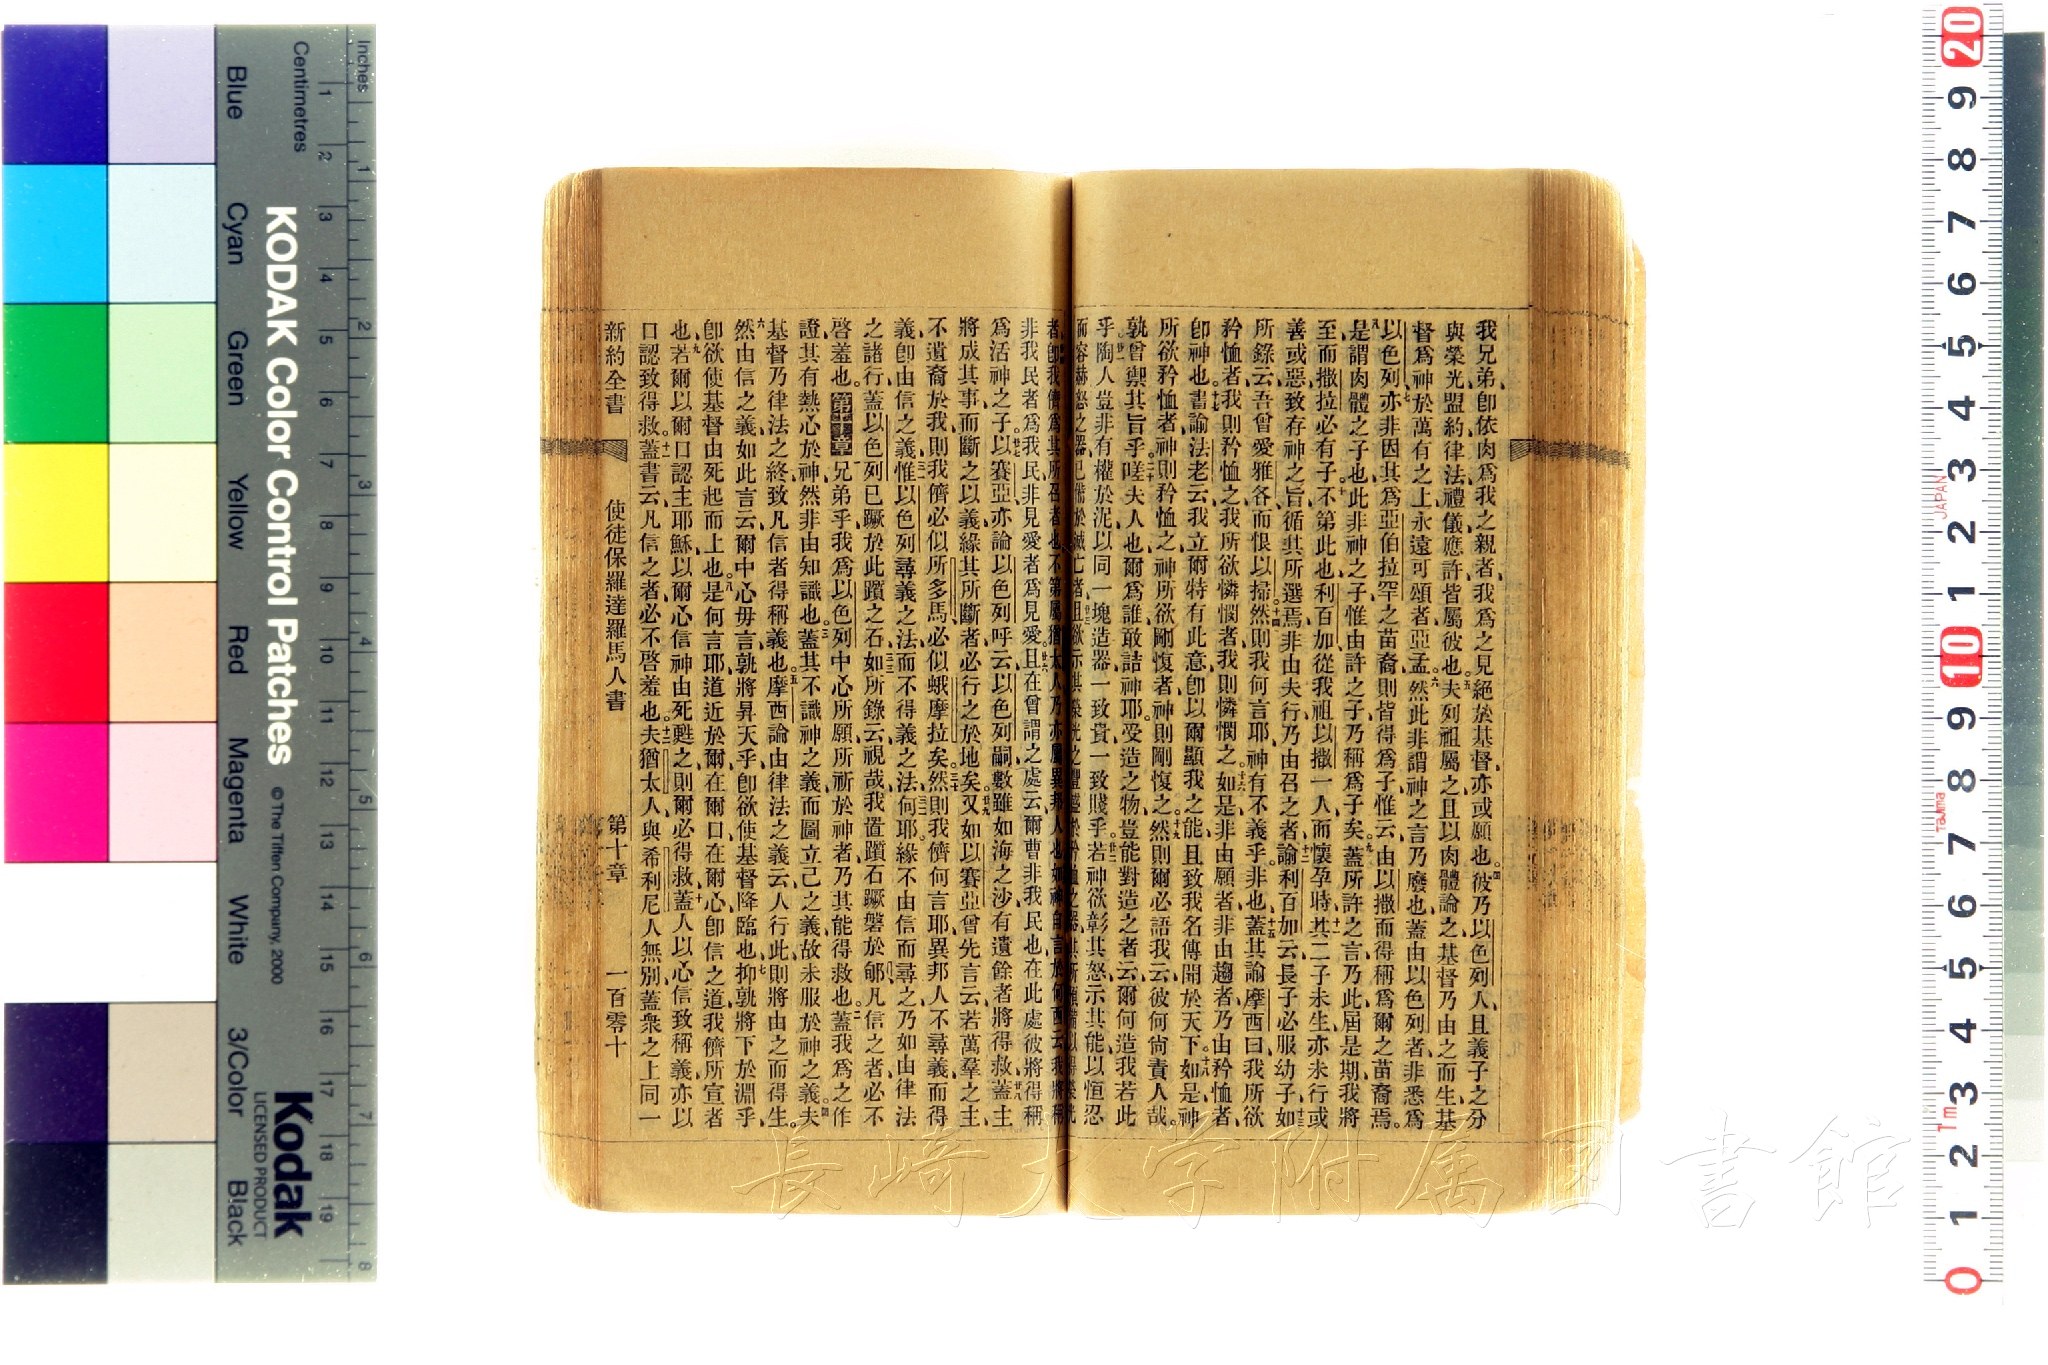 我兄弟卽依肉爲我之親者我爲之見絕於基督亦或願也四彼乃以色列人且義子之分
與榮光盟約律法禮儀應許皆屬彼也五夫列祖屬之且以肉體論之基督乃由之而生基
督爲神於萬有之上永遠可頌者亞孟六然此非謂神之言乃廢也蓋由以色列者非悉爲
以色列七亦非因其爲亞伯拉罕之苗裔則皆得爲子惟云由以撒而得稱爲爾之苗裔焉
八是謂肉體之子也此非神之子惟由許之子乃稱爲子矣九蓋所許之言乃此屆是期我將
至而撒拉必有子十不第此也利百加從我祖以撒一人而懷孕時十一其二子未生亦未行或
善或惡致存神之旨循其所選焉非由夫行乃由召之者十二諭利百加云長子必服幼子十三如
所錄云吾曾愛雅各而恨以掃十四然則我何言耶神有不義乎非也十五蓋其諭摩西曰我所欲
矜恤者我則矜恤之我所欲憐憫者我則憐憫之十六如是非由願者非由趨者乃由矜恤者
卽神也十七書諭法老云我立爾特有此意卽以爾顯我之能且致我名傳開於天下十八如是神
所欲矜恤者神則矜恤之神所欲剛愎者神則剛愎之十九然則爾必語我云彼何尙責人哉
孰曾禦其旨乎二十嗟夫人也爾爲誰敢詰神耶受造之物豈能對造之者云爾何造我若此
乎廿一陶人豈非有權於泥以同一塊造器一致貴一致賤乎廿二若神欲彰其怒示其能以恒忍
而容赫怒之器已備於滅亡者廿三且欲示其榮光之豐盛於矜恤之器其所預備以得榮光
者卽我儕爲其所召者也不第屬猶太人乃亦屬異邦人也如神自言於何西云我將稱
非我民者爲我民非見愛者爲見愛廿六且在曾謂之處云爾曹非我民也在此處彼將得稱
爲活神之子廿七以賽亞亦論以色列呼云以色列嗣數雖如海之沙有遺餘者將得救廿八蓋主
將成其事而斷之以義緣其所斷者必行之於地矣廿九又如以賽亞曾先言云若萬羣之主
不遺裔於我則我儕必似所多馬必似蛾摩拉矣三十然則我儕何言耶異邦人不尋義而得
義卽由信之義三一惟以色列尋義之法而不得義之法三二何耶緣不由信而尋之乃如由律法
之諸行蓋以色列已蹶於此躓之石三三如所錄云視哉我置躓石蹶磐於郇凡信之者必不
啓羞也第十章一兄弟乎我爲以色列中心所願所祈於神者乃其能得救也二蓋我爲之作
證其有熱心於神然非由知識也三蓋其不識神之義而圖立己之義故未服於神之義四夫
基督乃律法之終致凡信者得稱義也五摩西論由律法之義云人行此則將由之而得生
六然由信之義如此言云爾中心毋言孰將昇天乎卽欲使基督降臨也七抑孰將下於淵乎
卽欲使基督由死起而上也八是何言耶道近於爾在爾口在爾心卽信之道我儕所宣者
也九若爾以爾口認主耶穌以爾心信神由死甦之則爾必得救十蓋人以心信致稱義亦以
口認致得救十一蓋書云凡信之者必不啓羞也十二夫猶太人與希利尼人無別蓋衆之上同一
新約全書 使徒保羅達羅馬人書 第十章 一百零十
Inches
Centimetres
KODAK Color Control Patches
© The Tiffen Company, 2000
Kodak
LICENSED PRODUCT
Blue Cyan Green Yellow Red Magenta White 3/Color Black
1 2 3 4 5 6 7 8
1 2 3 4 5 6 7 8 9 10 11 12 13 14 15 16 17 18 19
20 9 8 7 6 5 4 3 2 1 10 9 8 7 6 5 4 3 2 1 0
JAPAN
Tajima
Tm
長崎大学附属図書館